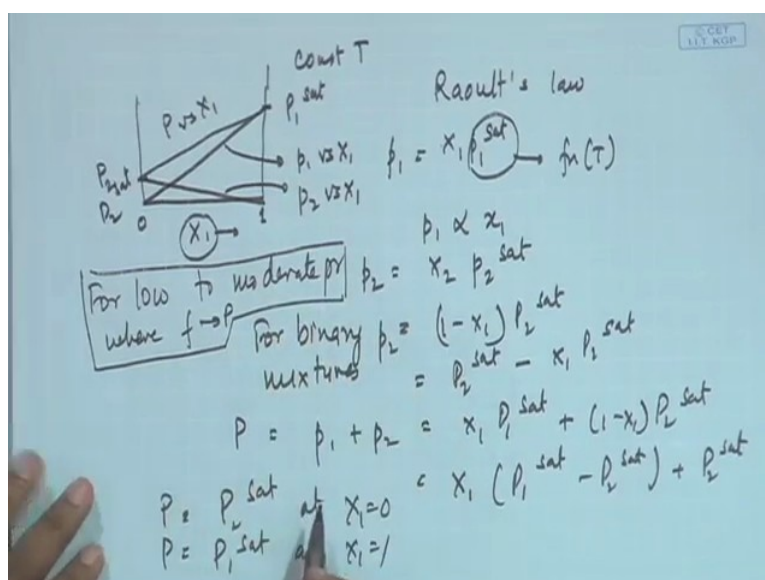 © CET
I.I.T. KGP
Const T
P vs X₁
P₁ˢᵃᵗ
P₂,sat
P₂
0
1
X₁ →
p₁ vs X₁
p₂ vs X₁
Raoult's law
p₁ = x₁ p₁ˢᵃᵗ → fn(T)
p₁ ∝ x₁
p₂ = x₂ p₂ˢᵃᵗ
For low to moderate pr
where f → P
For binary mixtures p₂ = (1 - x₁) P₂ˢᵃᵗ
= P₂ˢᵃᵗ - x₁ P₂ˢᵃᵗ
P = p₁ + p₂ = x₁ P₁ˢᵃᵗ + (1-x₁) P₂ˢᵃᵗ
= x₁ (P₁ˢᵃᵗ - P₂ˢᵃᵗ) + P₂ˢᵃᵗ
P = P₂ˢᵃᵗ at x₁=0
P = P₁ˢᵃᵗ a x₁=1